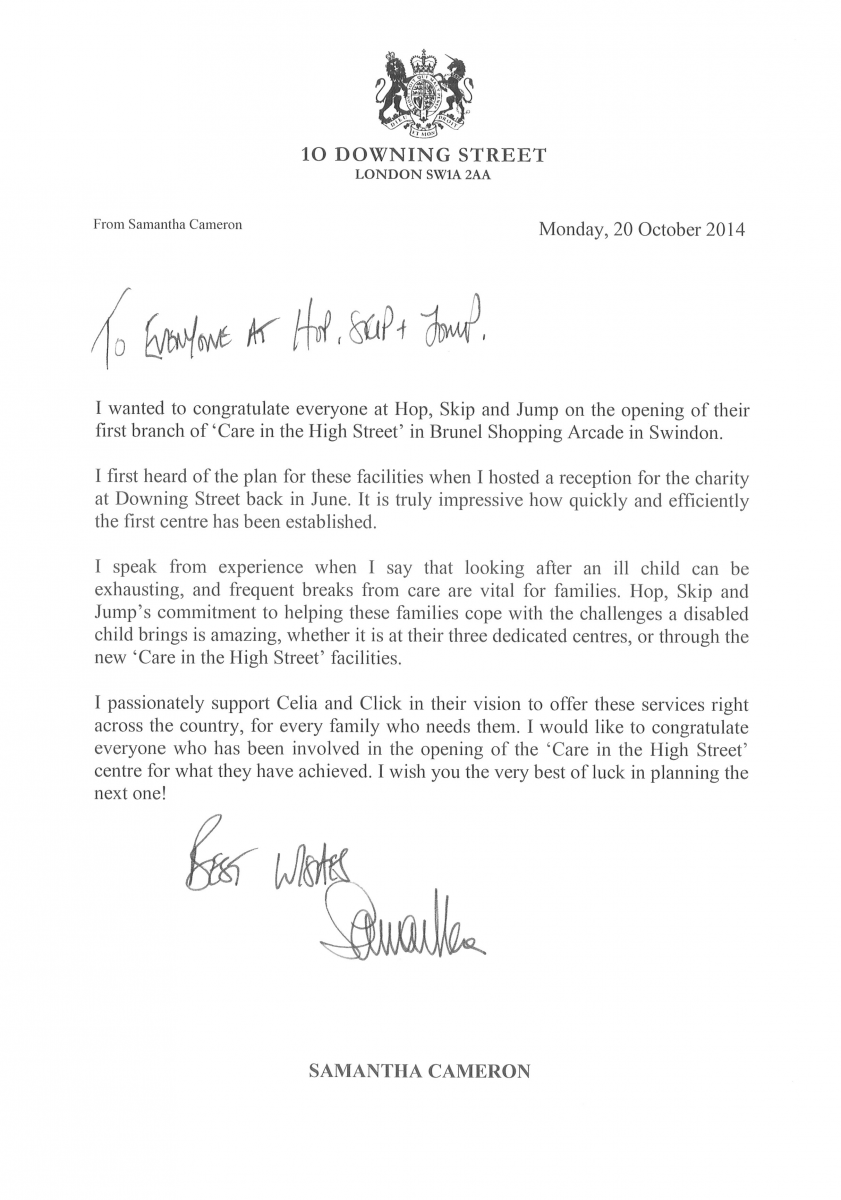 10 DOWNING STREET
LONDON SW1A 2AA
From Samantha Cameron
Monday, 20 October 2014
To Everyone at Hop, Skip + Jump.
I wanted to congratulate everyone at Hop, Skip and Jump on the opening of their
first branch of ‘Care in the High Street’ in Brunel Shopping Arcade in Swindon.
I first heard of the plan for these facilities when I hosted a reception for the charity
at Downing Street back in June. It is truly impressive how quickly and efficiently
the first centre has been established.
I speak from experience when I say that looking after an ill child can be
exhausting, and frequent breaks from care are vital for families. Hop, Skip and
Jump’s commitment to helping these families cope with the challenges a disabled
child brings is amazing, whether it is at their three dedicated centres, or through the
new ‘Care in the High Street’ facilities.
I passionately support Celia and Click in their vision to offer these services right
across the country, for every family who needs them. I would like to congratulate
everyone who has been involved in the opening of the ‘Care in the High Street’
centre for what they have achieved. I wish you the very best of luck in planning the
next one!
Best Wishes
Samantha
SAMANTHA CAMERON